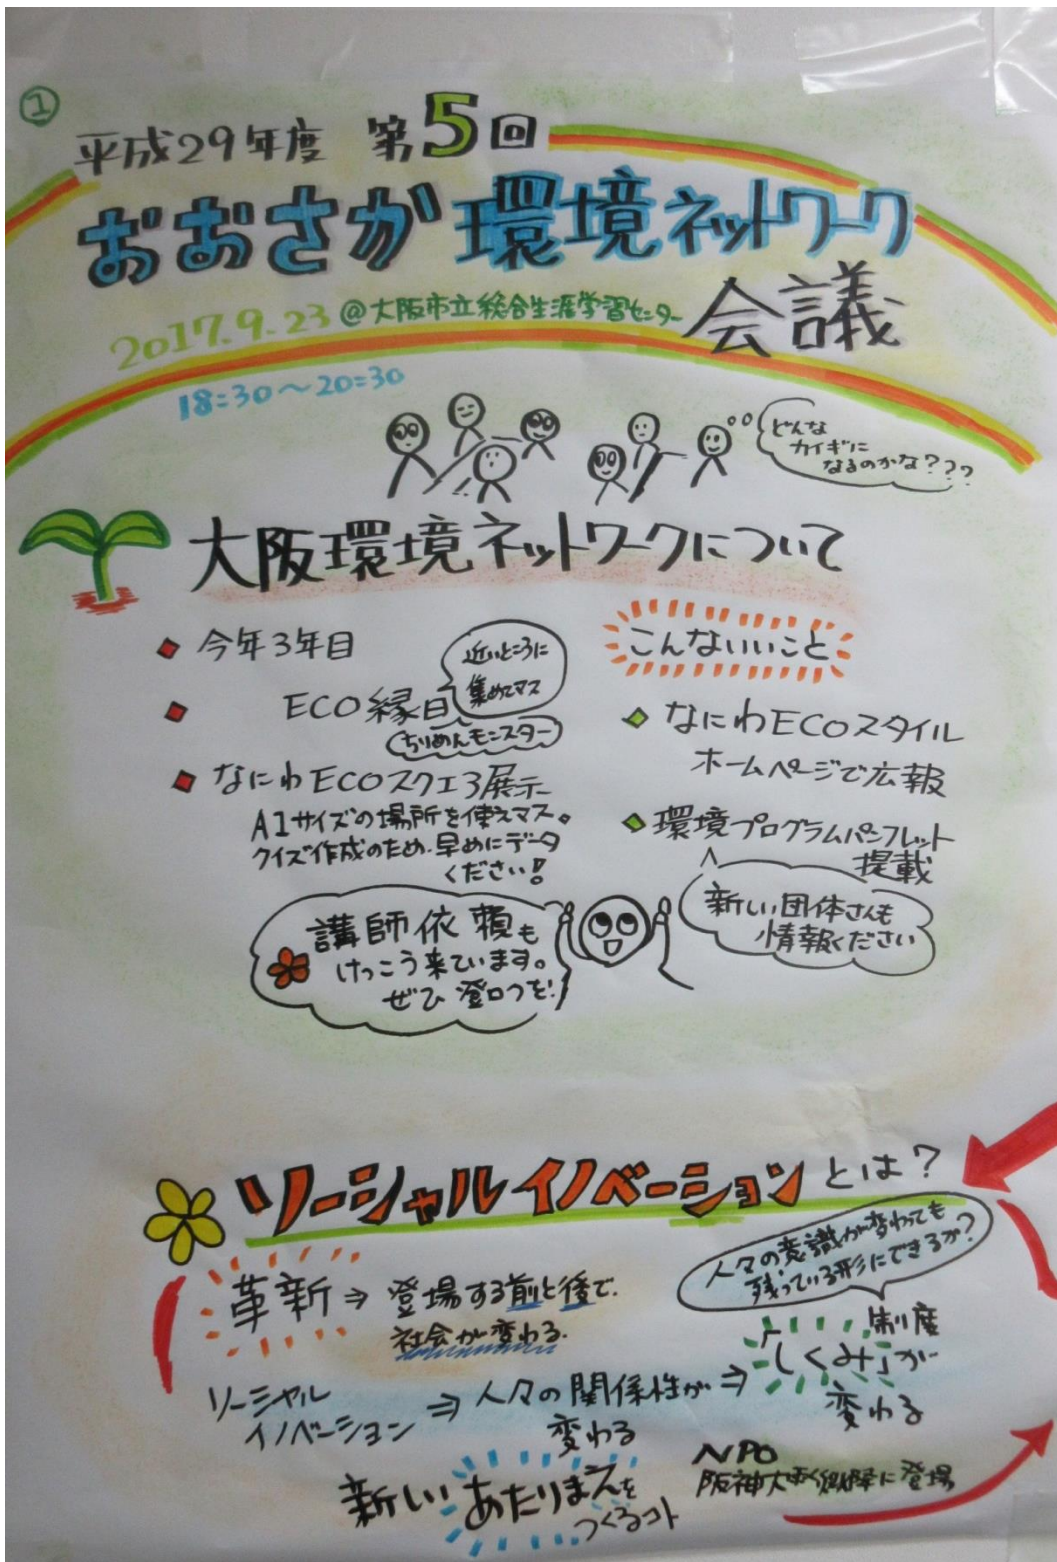 ①
平成29年度 第5回
おおさか環境ネットワーク
会議
2017.9.23 @大阪市立総合生涯学習センター
18:30〜20:30
どんな
カイギに
なるのかな???
大阪環境ネットワークについて
今年3年目
ECO縁日
近いところに
集めてマス
ちりめんモンスター
なにわECOスクエア展示
A1サイズの場所を使えマス。
クイズ作成のため、早めにデータ
ください!
こんないいこと
なにわECOスタイル
ホームページで広報
環境プログラムパンフレット
掲載
新しい団体さんも
情報ください
講師依頼も
けっこう来ています。
ぜひ 登口つを!
ソーシャルイノベーションとは?
革新⇒登場する前と後で、
社会が変わる。
人々の意識が変わっても
残っている形にできるか?
制度
ソーシャル
イノベーション⇒人々の関係性が
変わる
⇒「しくみ」が
変わる
新しいあたりまえを
つくるコト
NPO
阪神大に登場